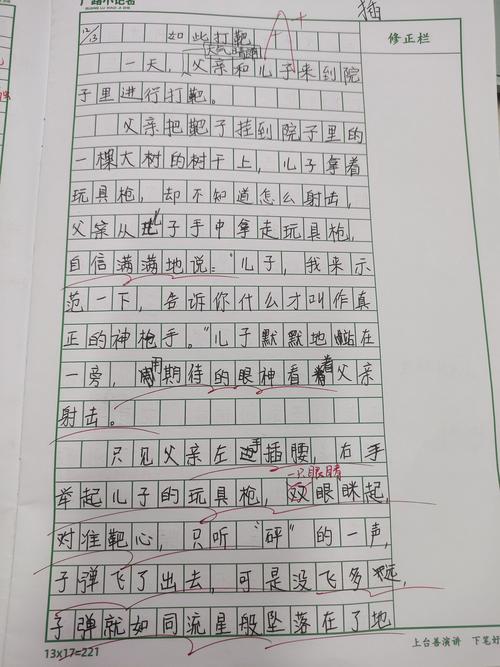 插
12/13 如此打靶 A++
修正栏
天气晴朗
一天，父亲和儿子来到院
子里进行打靶。
父亲把靶子挂到院子里的
一棵大树的树干上，儿子拿着
玩具枪，却不知道怎么射击，
父亲从儿子手中拿走玩具枪，
自信满满地说：“儿子，我来示
范一下，告诉你什么才叫作真
正的神枪手。”儿子默默地站在
一旁，用期待的眼神看着父亲
射击。
只见父亲左手插腰，右手
一只眼睛
举起儿子的玩具枪，双眼眯起，
对准靶心，只听“砰”的一声，
子弹飞了出去，可是没飞多远，
子弹就如同流星般坠落在了地
13×17=221
上台善演讲 下笔好